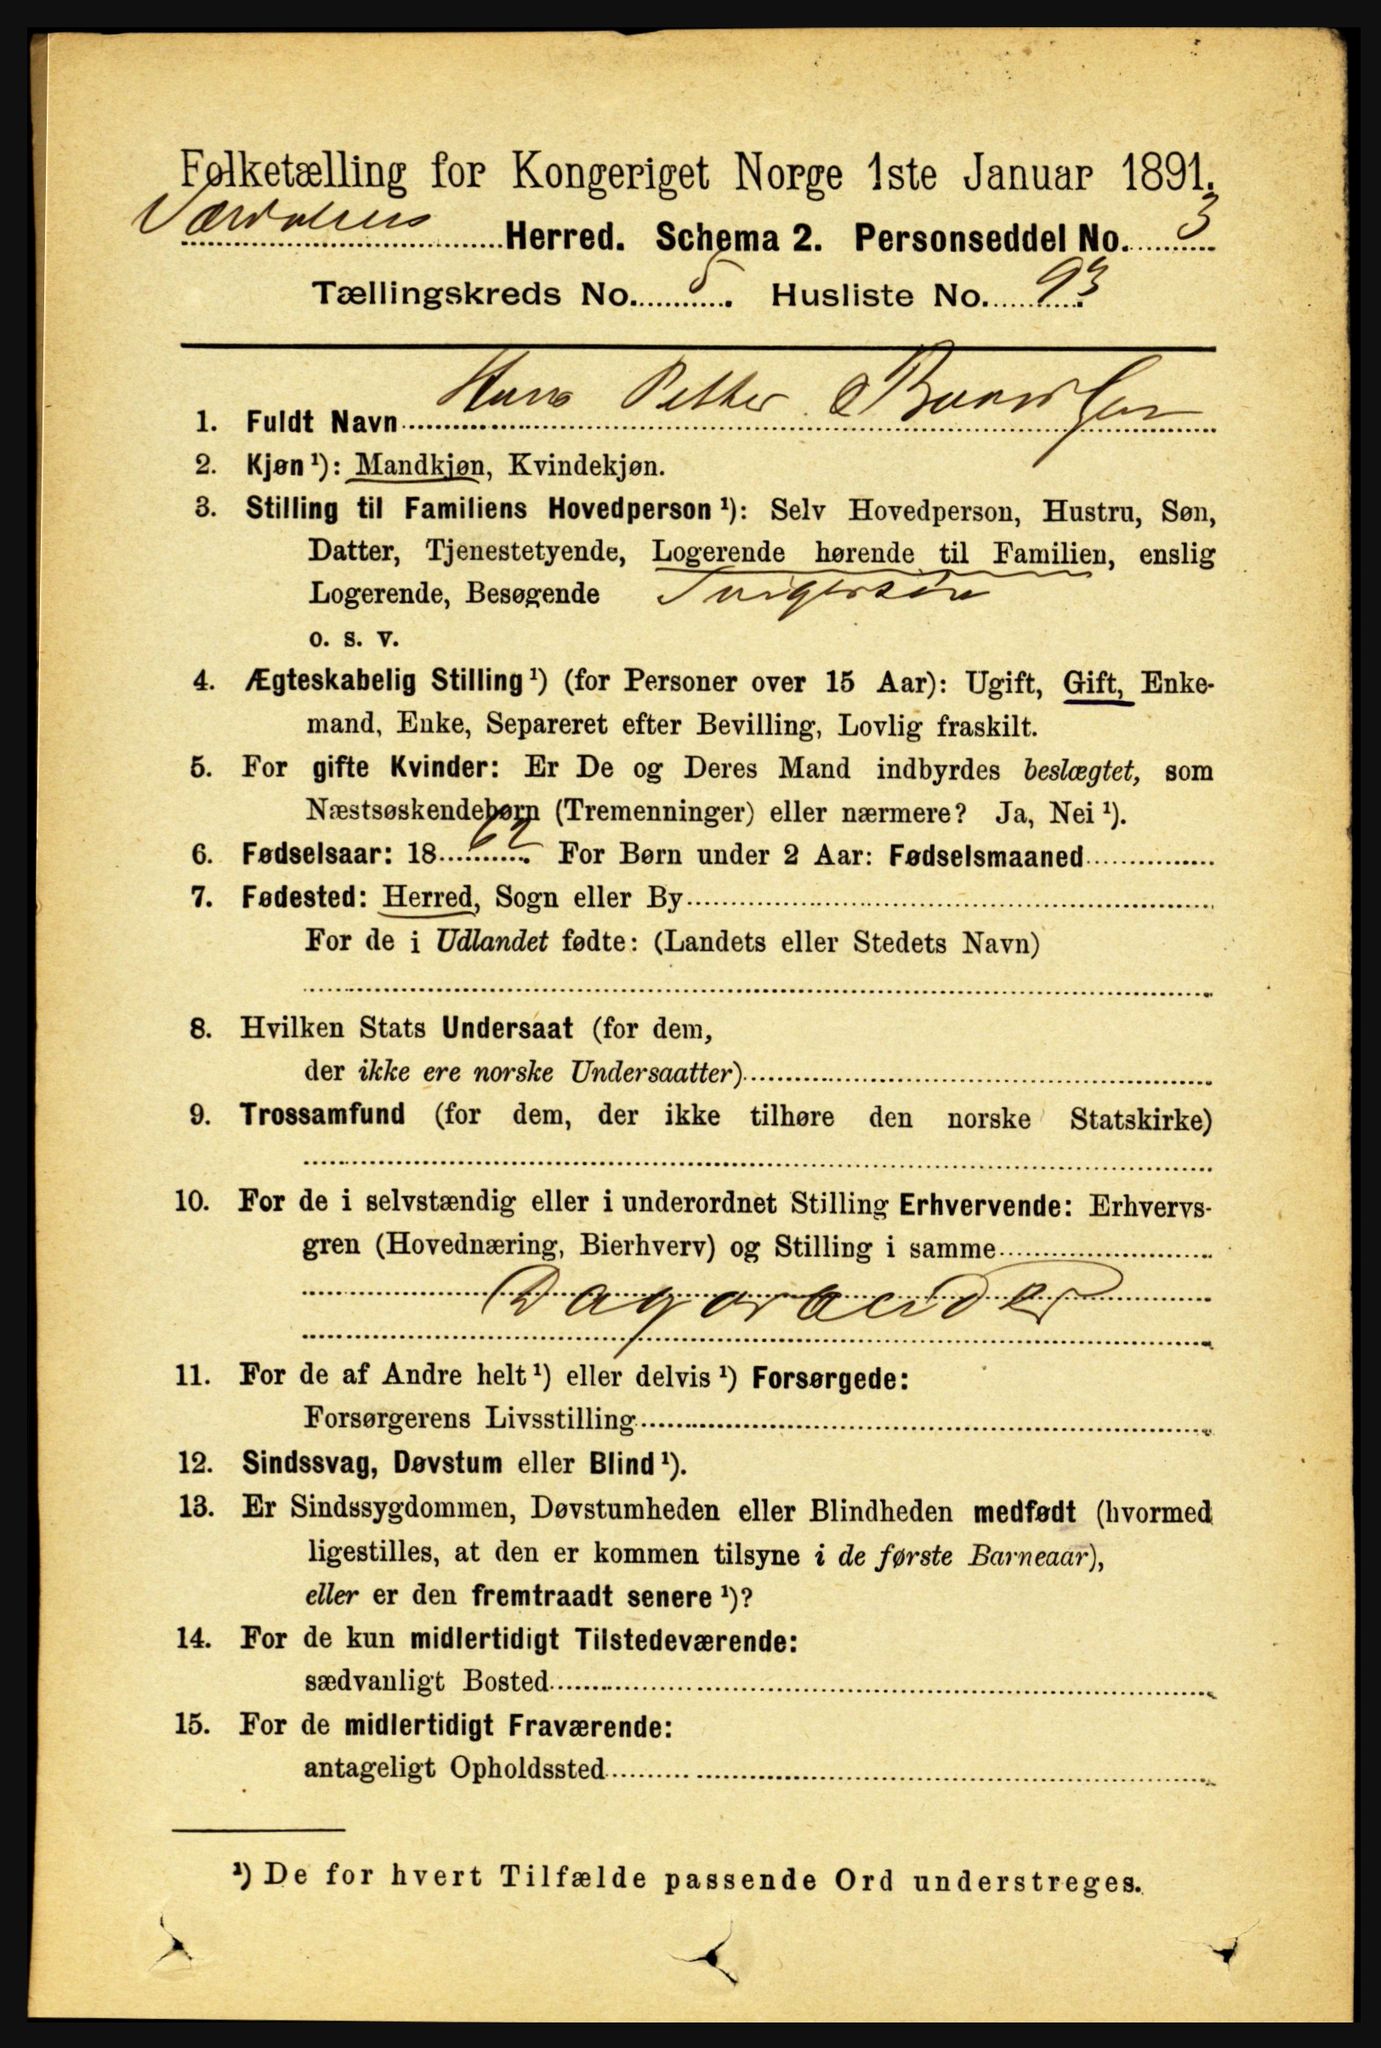 Folketælling for Kongeriget Norge 1ste Januar 1891.
Værdalens Herred. Schema 2. Personseddel No. 3
Tællingskreds No. 5. Husliste No. 93
1. Fuldt Navn Hans Petter
2. Kjøn ¹): Mandkjøn, Kvindekjøn.
3. Stilling til Familiens Hovedperson ¹): Selv Hovedperson, Hustru, Søn,
Datter, Tjenestetyende, Logerende hørende til Familien, enslig
Logerende, Besøgende Svigersøn
o. s. v.
4. Ægteskabelig Stilling ¹) (for Personer over 15 Aar): Ugift, Gift, Enke-
mand, Enke, Separeret efter Bevilling, Lovlig fraskilt.
5. For gifte Kvinder: Er De og Deres Mand indbyrdes beslægtet, som
Næstsøskendebørn (Tremenninger) eller nærmere? Ja, Nei ¹).
6. Fødselsaar: 18 62. For Børn under 2 Aar: Fødselsmaaned
7. Fødested: Herred, Sogn eller By
For de i Udlandet fødte: (Landets eller Stedets Navn)
8. Hvilken Stats Undersaat (for dem,
der ikke ere norske Undersaatter)
9. Trossamfund (for dem, der ikke tilhøre den norske Statskirke)
10. For de i selvstændig eller i underordnet Stilling Erhvervende: Erhvervs-
gren (Hovednæring, Bierhverv) og Stilling i samme
Dagarbeider
11. For de af Andre helt ¹) eller delvis ¹) Forsørgede:
Forsørgerens Livsstilling
12. Sindssvag, Døvstum eller Blind ¹).
13. Er Sindssygdommen, Døvstumheden eller Blindheden medfødt (hvormed
ligestilles, at den er kommen tilsyne i de første Barneaar),
eller er den fremtraadt senere ¹)?
14. For de kun midlertidigt Tilstedeværende:
sædvanligt Bosted
15. For de midlertidigt Fraværende:
antageligt Opholdssted
¹) De for hvert Tilfælde passende Ord understreges.